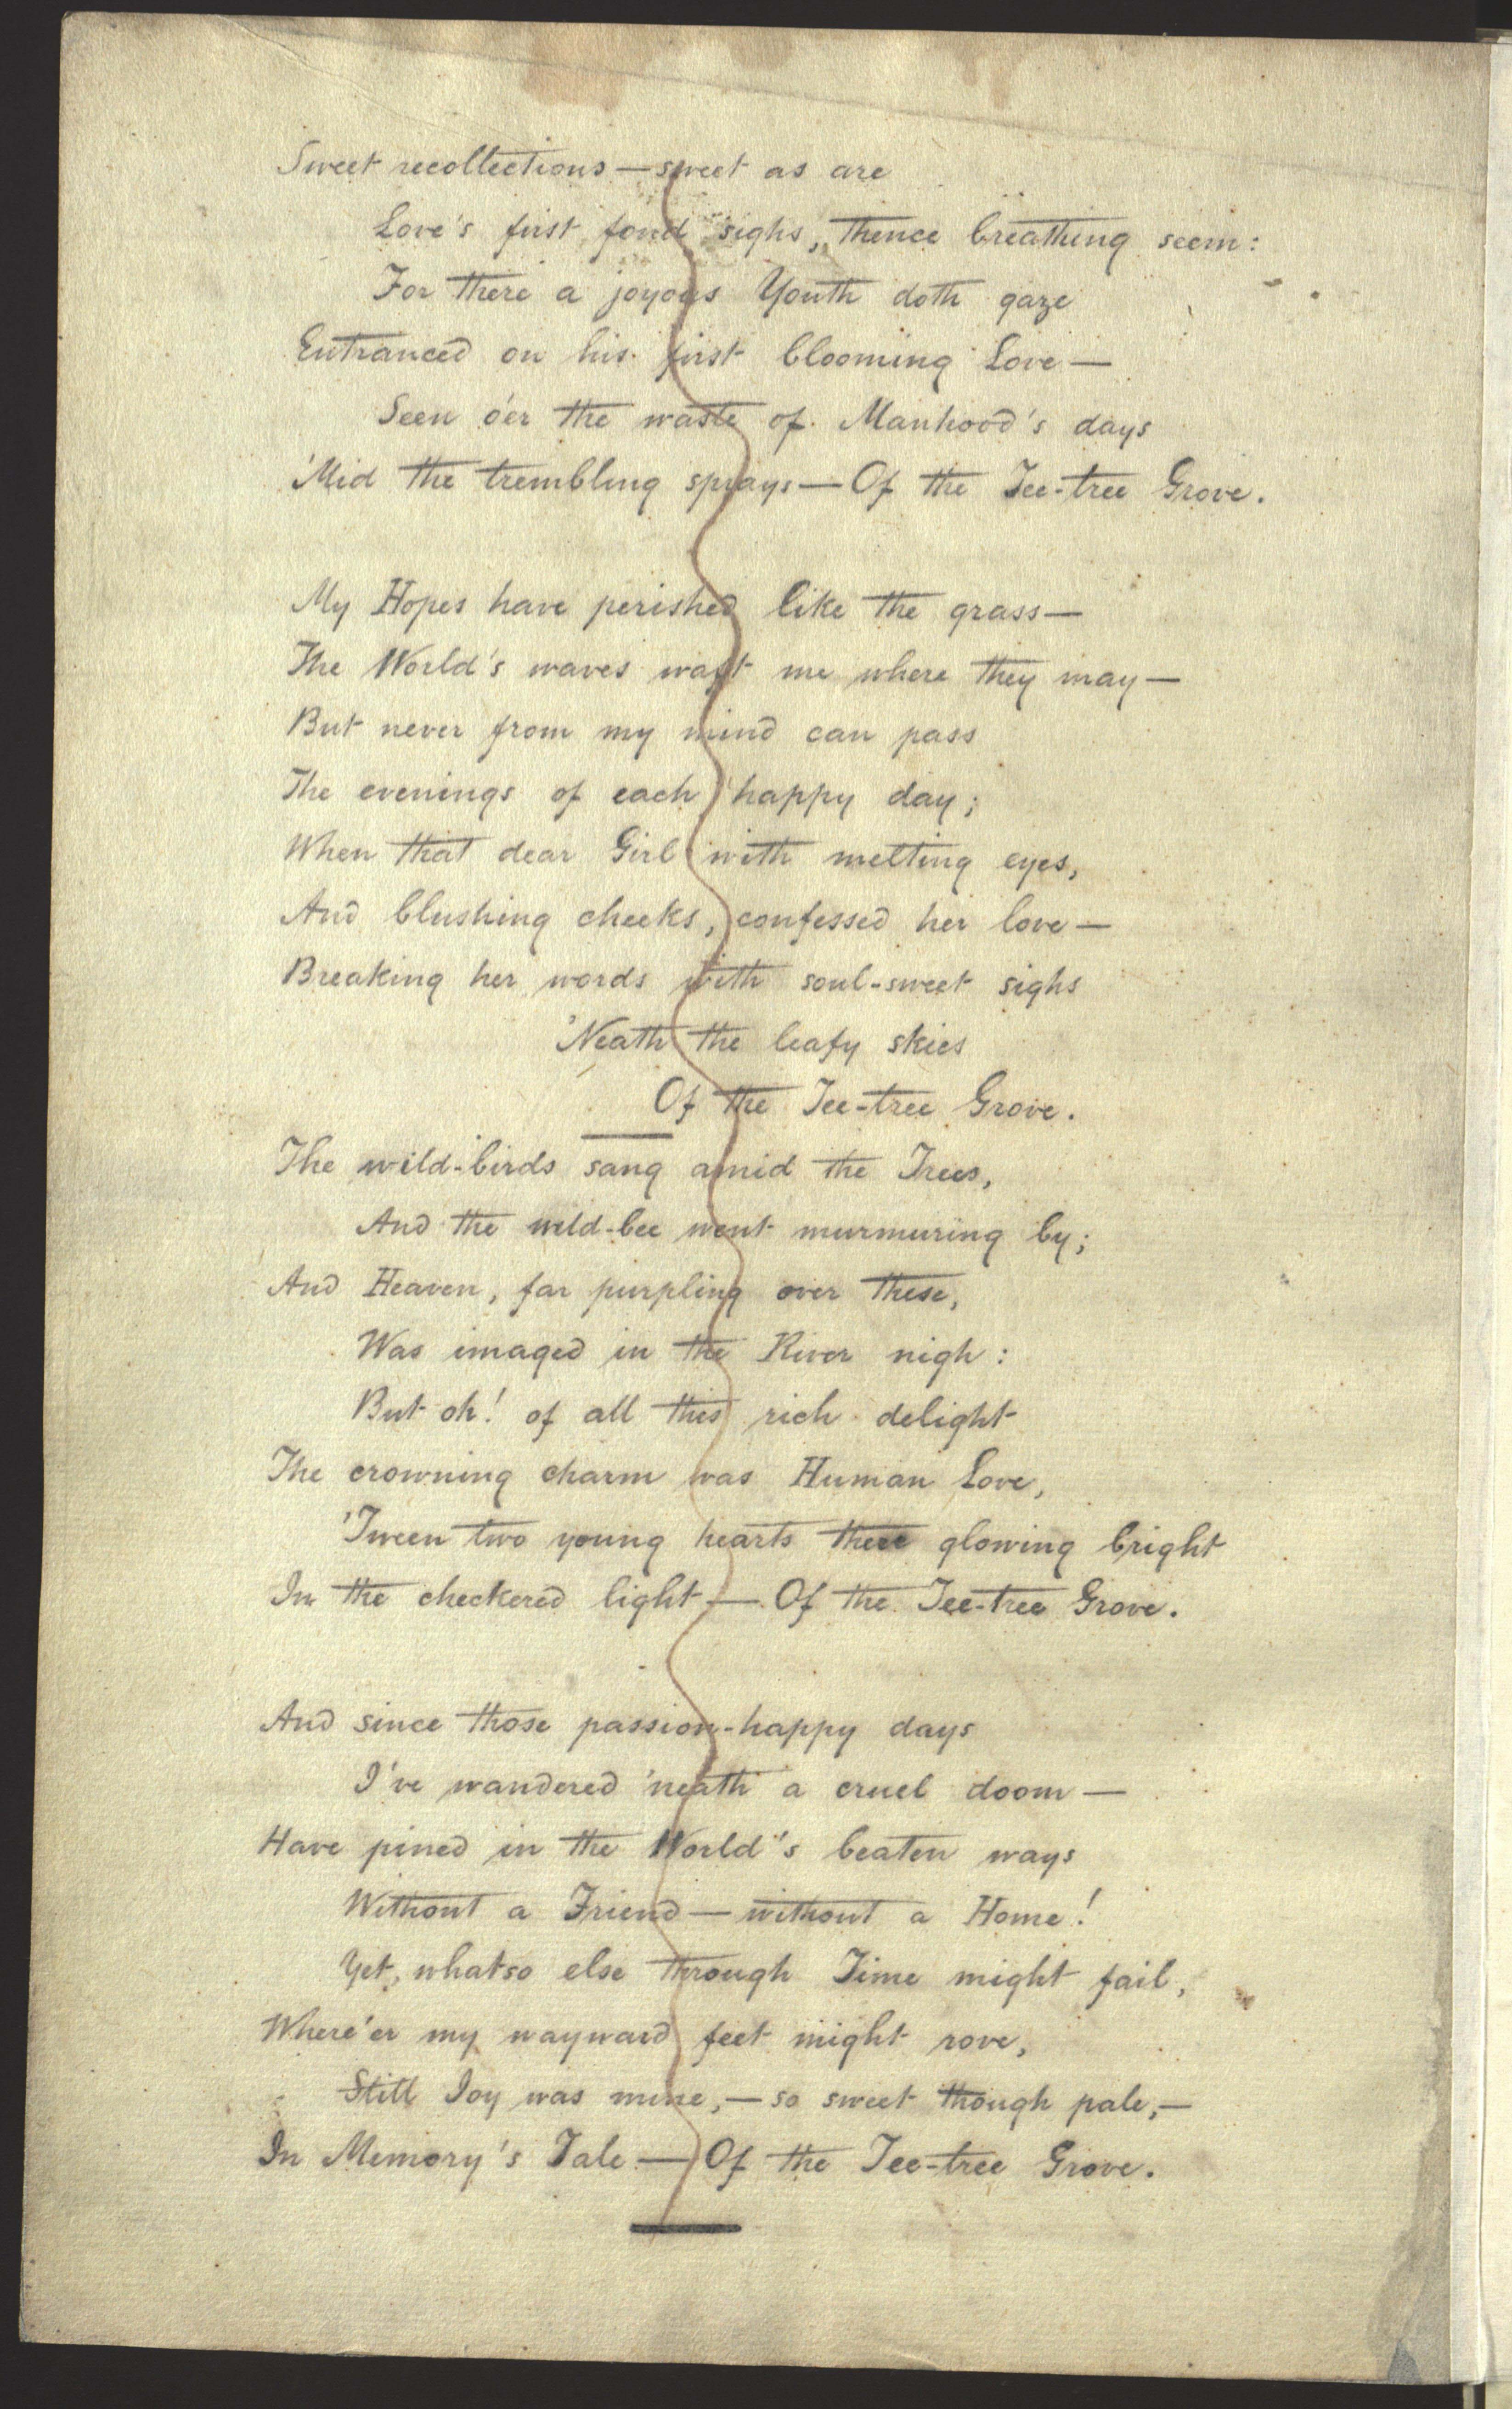 Sweet recollections — sweet as are
Love's first fond sighs, thence breathing seem:
For there a joyous Youth doth gaze
Entranced on his first blooming Love —
Seen o'er the waste of Manhood's days
'Mid the trembling sprays — Of the Tee-tree Grove.
My Hopes have perished like the grass —
The World's waves waft me where they may —
But never from my mind can pass
The evenings of each happy day;
When that dear Girl with melting eyes,
And blushing cheeks, confessed her love —
Breaking her words with soul-sweet sighs
'Neath the leafy skies
Of the Tee-tree Grove.
The wild-birds sang amid the Trees,
And the wild-bee went murmuring by;
And Heaven, far purpling over these,
Was imaged in the River nigh:
But oh! of all this rich delight
The crowning charm was Human Love,
'Tween two young hearts there glowing bright
In the checkered light — Of the Tee-tree Grove.
And since those passion-happy days
I've wandered 'neath a cruel doom —
Have pined in the World's beaten ways
Without a Friend — without a Home!
Yet, whatso else through Time might fail,
Where'er my wayward feet might rove,
Still Joy was mine, — so sweet though pale, —
In Memory's Tale — Of the Tee-tree Grove.